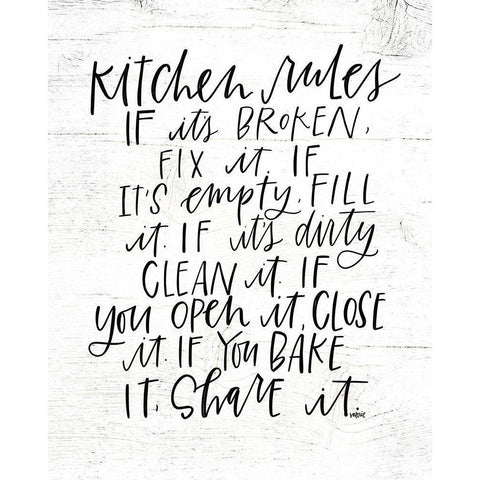 Kitchen rules
IF it's BROKEN,
FIX it. IF
IT'S empty, FILL
it. IF it's dirty
CLEAN it. IF
you open it, CLOSE
it. IF YOU BAKE
IT, Share it.